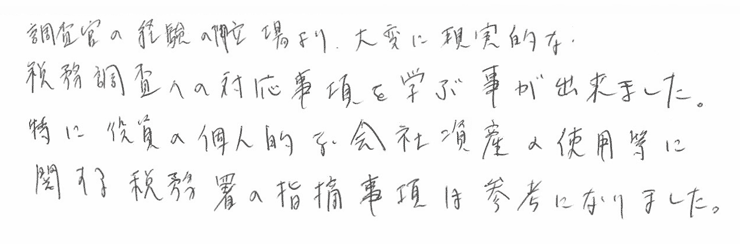 調査官の経験の立場より、大変に現実的な
税務調査への対応事項を学ぶ事が出来ました。
特に役員の個人的な会社資産の使用等に
関する税務署の指摘事項は参考になりました。